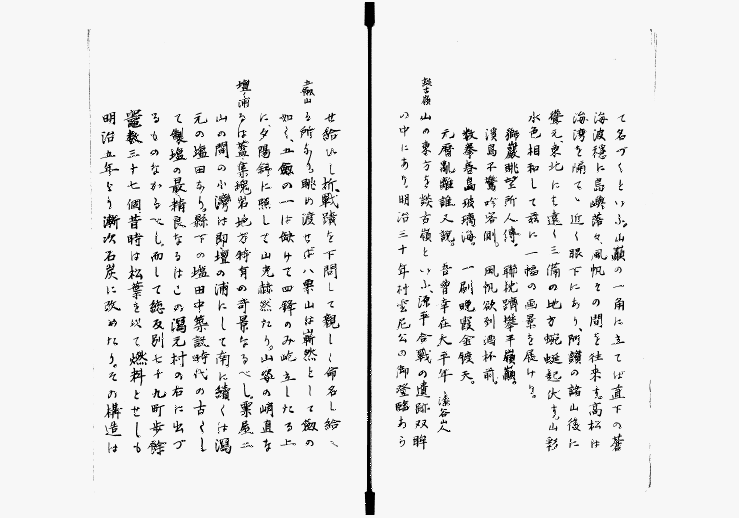 て名づくといふ。山巓の一角に立てば直下の蒼
海波穏に島嶼落々風帆その間を往来す高松は
海湾を隔てゝ近く眼下にあり、阿讃の諸山後に
聳え、東北にも遠く三備の地方蜿蜒起伏す山影
水色相和して茲に一幅の画景を展けり。
獅巖眺望所人傳、聯枕躋攀平嶺巓。
漬鳥不驚吟客側、風帆欲到酒杯前。
数拳巻島玻璃海、一刷晩霞金鍍天。
元暦亂離誰又説、吾曽幸在太平年 溪谷山人
談古嶺
山の東方を談古嶺といふ源平合戦の遺跡双眸
の中にあり。明治三十年村雲尼公の御登臨あら
せ給ひし折、戦蹟を下問して親しく命名し給へ
る所なり眺め渡せば八栗山は嶄然として劔の
五劔山
如く、五劔の一は缺けて四鋒のみ屹立したる上
に、夕陽斜に照して山光赫然たり。山容の峭直な
るは蓋集塊岩地方特有の奇景なるべし。栗屋二
壇ノ浦
山の間の小湾は即壇の浦にして南に續くは潟
元の塩田なり。縣下の塩田中築設時代の古くし
て製塩の最精良なるはこの潟元村の右に出づ
るものなかるべし而して総反別七十九町歩餘
竈数三十七個昔時は松葉を以て燃料とせしも
明治五年より漸次石炭に改めたり。その構造は